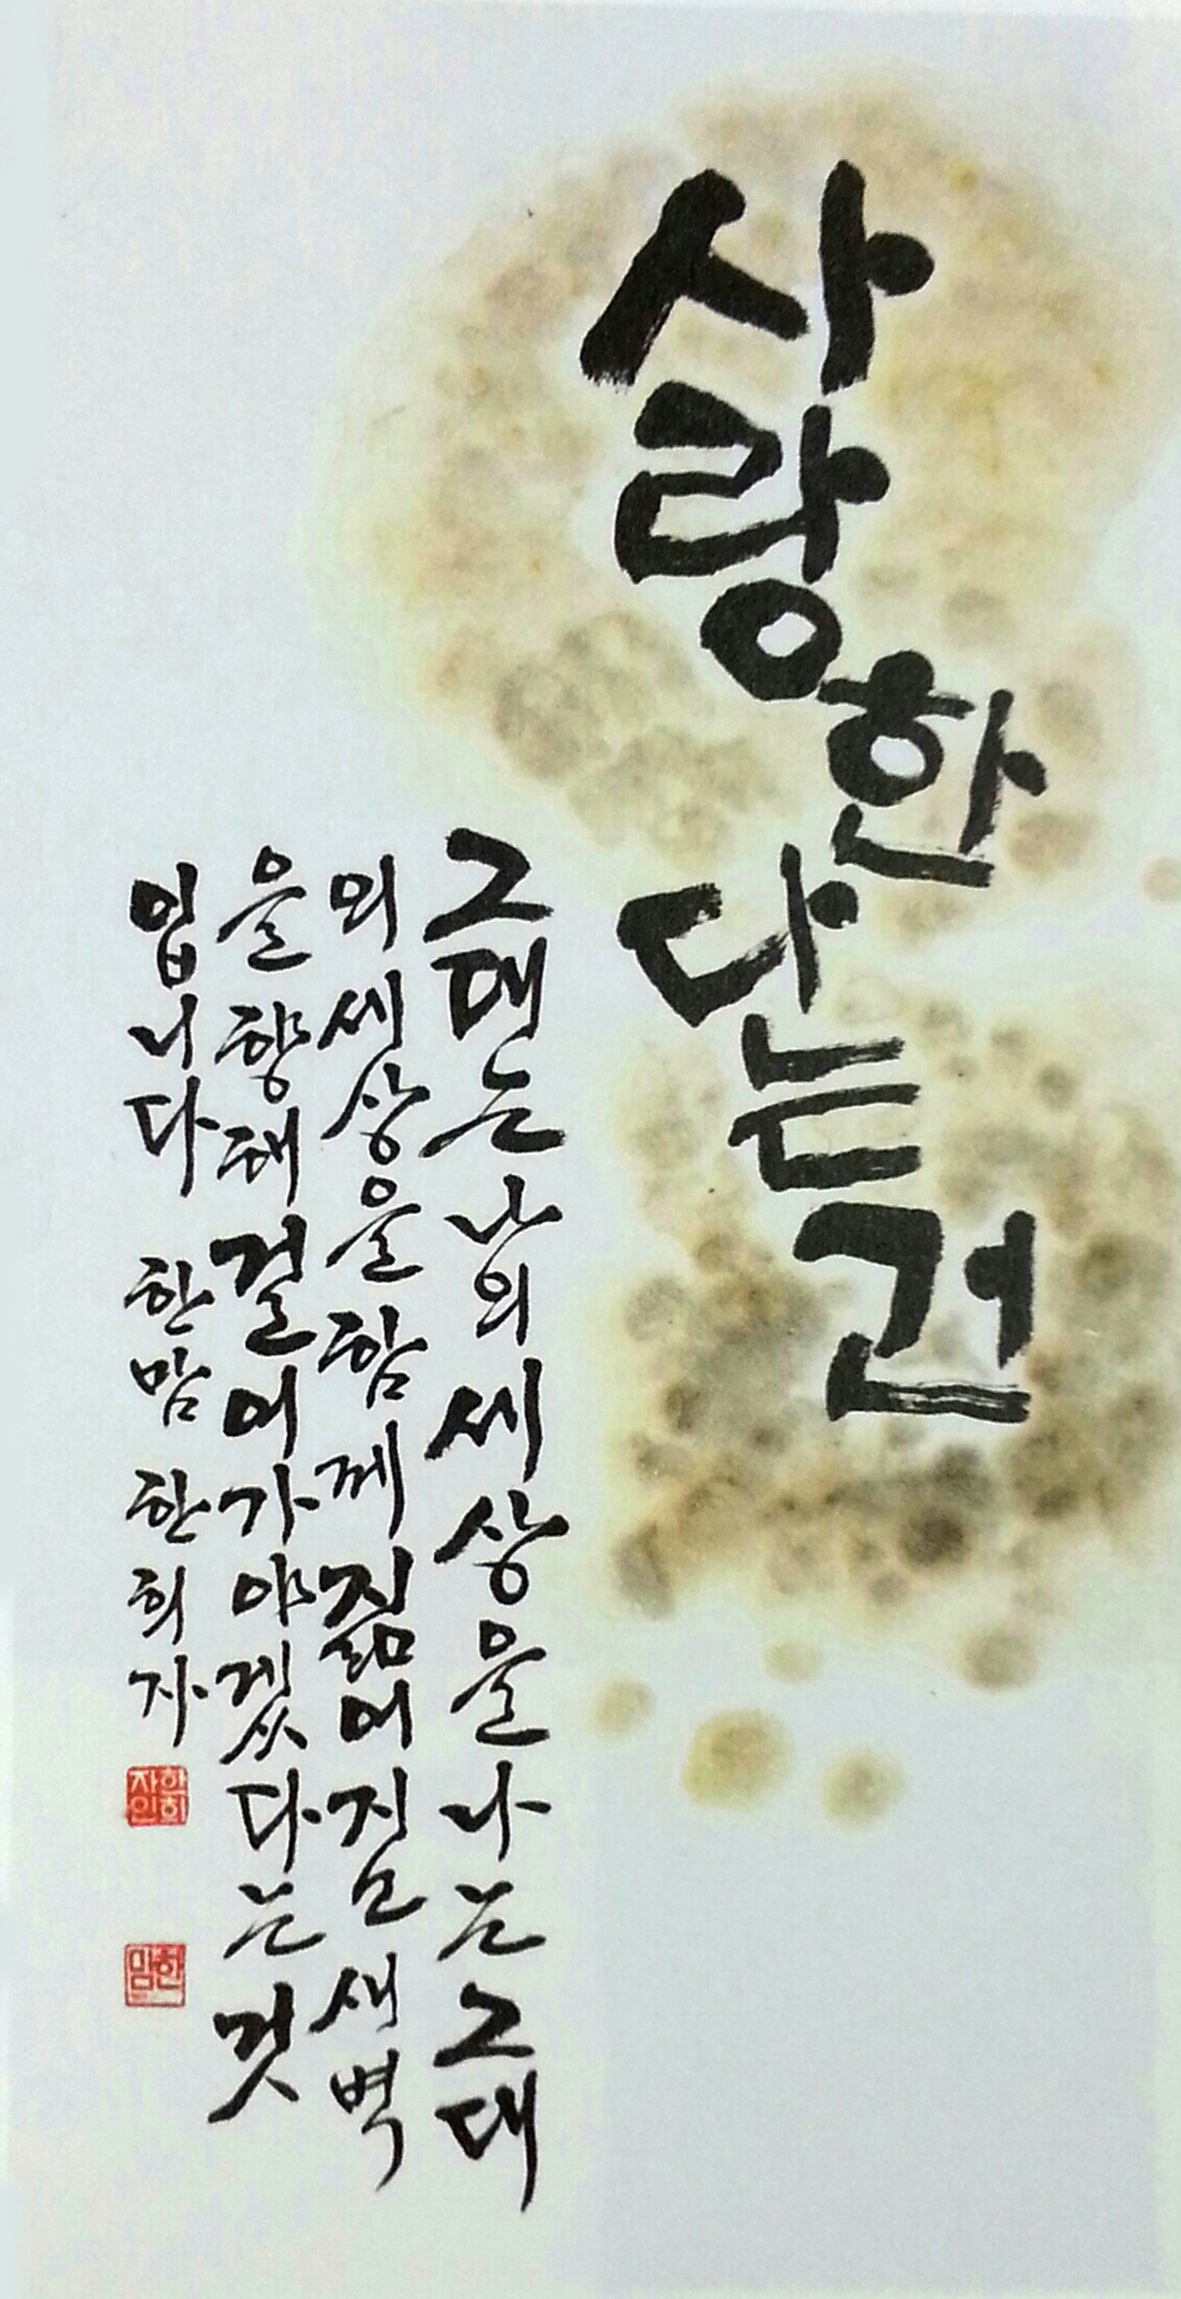 사랑한다는 건
그대는 나의 세상을 나는 그대
의 세상을 함께 짊어지고 새벽
을 향해 걸어가야겠다는 것
입니다 한맘 한희자
한희자인
한맘